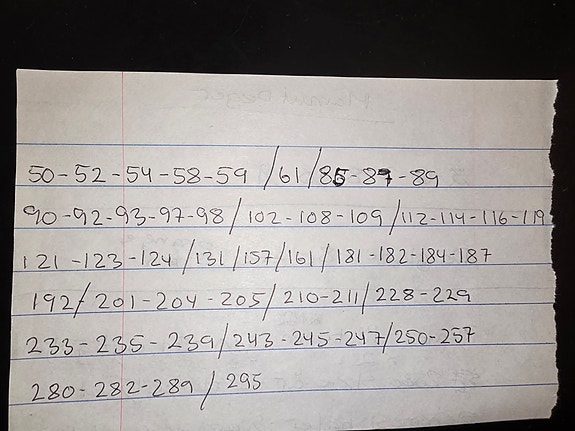 50-52-54-58-59 /61/85-87-89
90-92-93-97-98/102-108-109/112-114-116-119
121-123-124/131/157/161/181-182-184-187
192/201-204-205/210-211/228-229
233-235-239/243-245-247/250-257
280-282-289 / 295